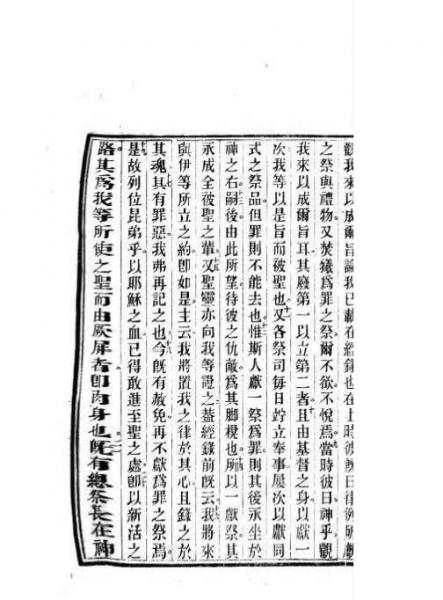 觀我來以成爾旨論我已載在經錄也在上時彼旣曰律例所獻
之祭與禮物又焚犧爲罪之祭爾不欲不悅焉當時彼曰神乎觀
我來以成爾旨耳其廢第一以立第二者且由基督之身以獻一
次我等以是旨而被聖也又各祭司每日竚立奉事屢次以獻同
式之祭品但罪則不能去也惟斯人獻一祭爲罪則其後永坐於
神之右嗣後由此所望待彼之仇敵爲其脚櫈也所以一獻祭其
永成全彼聖之輩又聖靈亦向我等證之蓋經錄前旣云我將來
與伊等所立之約卽如是主云我將置我之律於其心且錄之於
其魂其有罪惡我弗再記之也今旣有赦免再不獻爲罪之祭焉
是故列位昆弟乎以耶穌之血已得敢進至聖之處卽以新活之
路其爲我等所使之聖而由厥屏者卽肉身也旣有總祭長在神